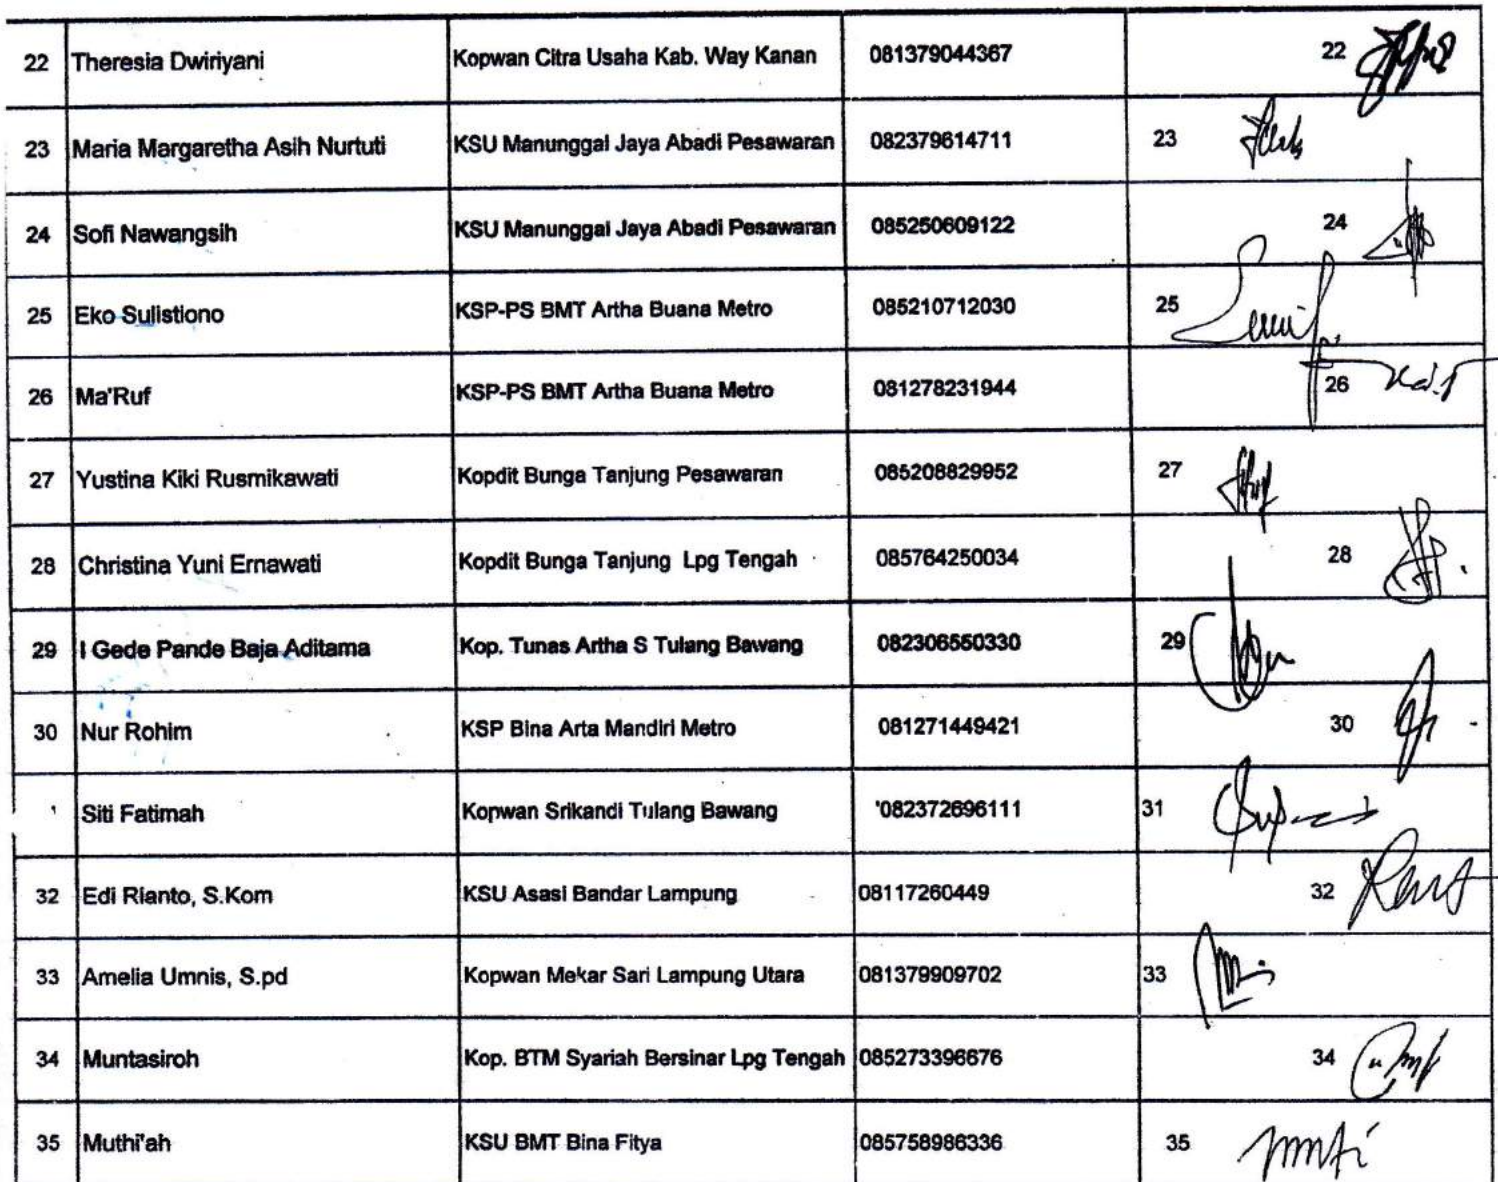 22 Theresia Dwiriyani Kopwan Citra Usaha Kab. Way Kanan 081379044367 22
23 Maria Margaretha Asih Nurtuti KSU Manunggal Jaya Abadi Pesawaran 082379614711 23
24 Sofi Nawangsih KSU Manunggal Jaya Abadi Pesawaran 085250609122 24
25 Eko Sulistiono KSP-PS BMT Artha Buana Metro 085210712030 25
26 Ma'Ruf KSP-PS BMT Artha Buana Metro 081278231944 26
27 Yustina Kiki Rusmikawati Kopdit Bunga Tanjung Pesawaran 085208829952 27
28 Christina Yuni Ernawati Kopdit Bunga Tanjung Lpg Tengah 085764250034 28
29 I Gede Pande Baja Aditama Kop. Tunas Artha S Tulang Bawang 082306550330 29
30 Nur Rohim KSP Bina Arta Mandiri Metro 081271449421 30
Siti Fatimah Kopwan Srikandi Tulang Bawang '082372696111 31
32 Edi Rianto, S.Kom KSU Asasi Bandar Lampung 08117260449 32
33 Amelia Umnis, S.pd Kopwan Mekar Sari Lampung Utara 081379909702 33
34 Muntasiroh Kop. BTM Syariah Bersinar Lpg Tengah 085273396676 34
35 Muthi'ah KSU BMT Bina Fitya 085758986336 35